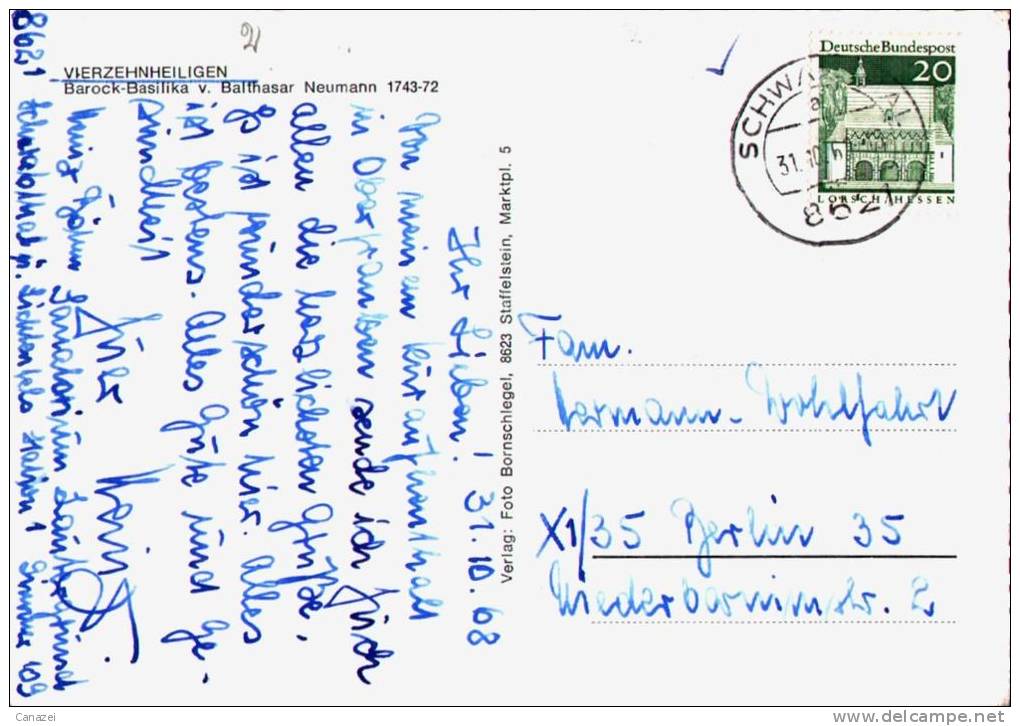 VIERZEHNHEILIGEN
Barock-Basilika v. Balthasar Neumann 1743-72
Ihr Lieben! 31.10.68
Von meinem Kuraufenthalt
in Oberfranken sende ich Euch
allen die herzlichsten Grüße,
Es ist wunderschön hier. Alles
ist bestens. Alles Gute und Ge-
sundheit
Euer Heinz
Heinz
Sanatorium
8621 Schwabthal
Station 1
Verlag: Foto Bornschlegel, 8623 Staffelstein, Marktpl. 5
Deutsche Bundespost
20
LORSCH/HESSEN
SCHWA
a
31.10.
8621
Fam.
Wohlfahrt
X1/35 Berlin 35
Niederbarnimstr. 2
Canazei
www.delcampe.net